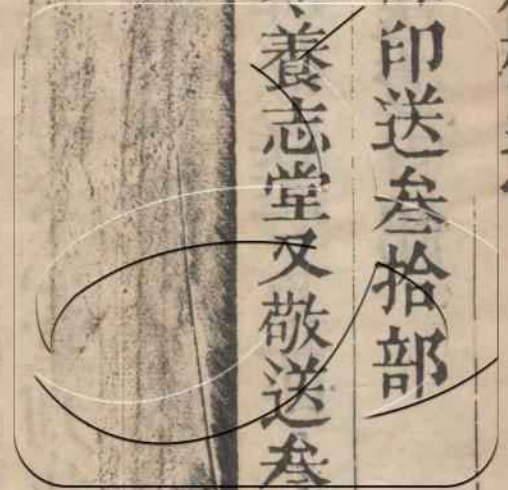 印送叁拾部
養志堂又敬送叁